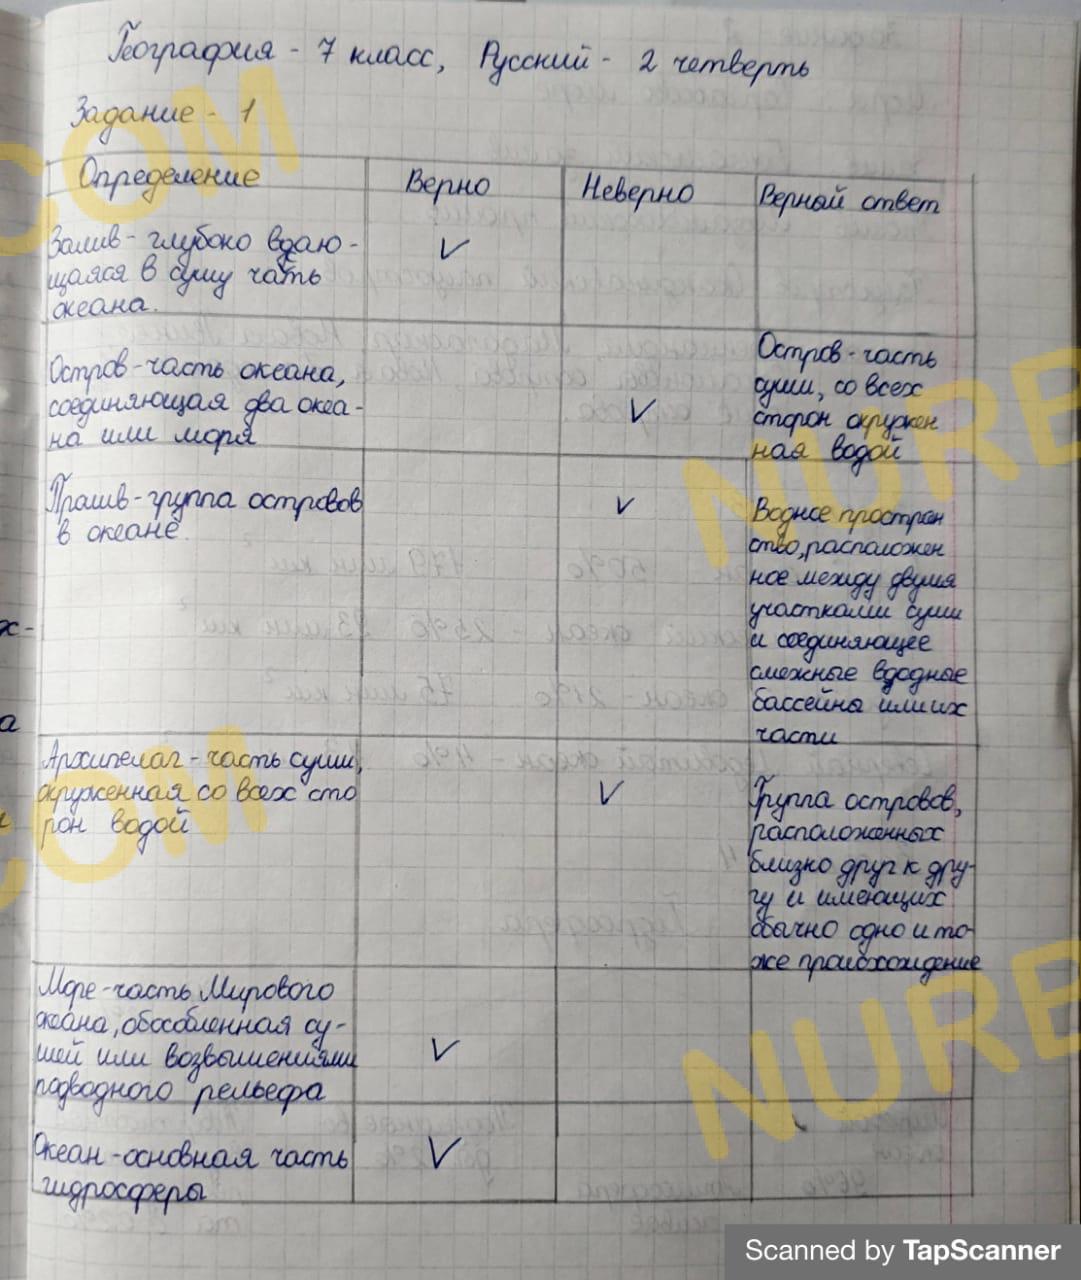 География - 7 класс, Русский - 2 четверть
Задание - 1
Определение
Верно
Неверно
Верный ответ
Залив - глубоко вдаю-
щаяся в сушу чать
океана.
Остров - часть океана,
соединяющая два океа-
на или моря
Остров - часть
суши, со всех
сторон окружен
ная водой
Пролив - группа островов
в океане.
Водное простран
ство, расположен
ное между двумя
участками суши
и соединяющее
смежные водные
бассейны или их
части
Архипелаг - часть суши,
окруженная со всех сто
рон водой
Группа островов,
расположенных
близко друг к дру-
гу и имеющих
обычно одно и то-
же происхождение
Море - часть Мирового
океана, обособленная су-
шей или возвышениями
подводного рельефа
Океан - основная часть
гидросферы
COM
NURB
COM
NURB
Scanned by TapScanner